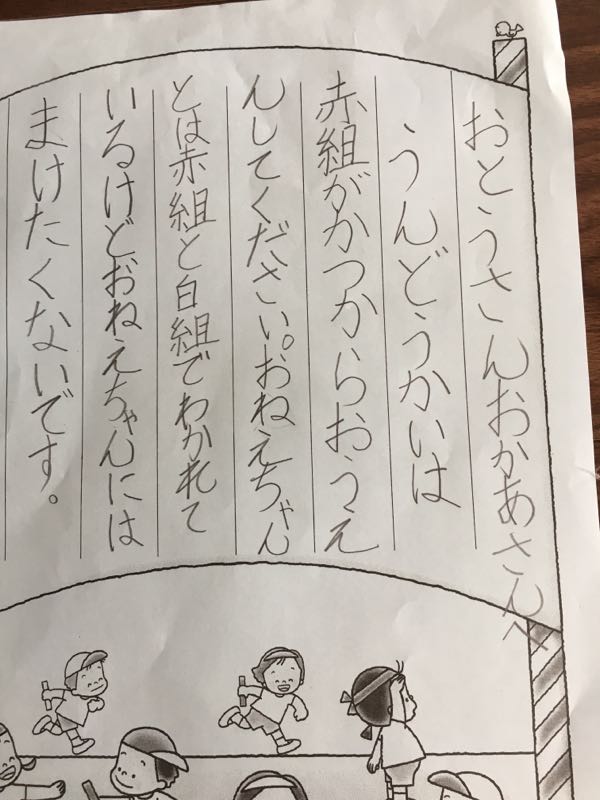 おとうさんおかあさんへ
うんどうかいは
赤組がかつからおうえ
んしてください。おねえちゃん
とは赤組と白組でわかれて
いるけどおねえちゃんには
まけたくないです。